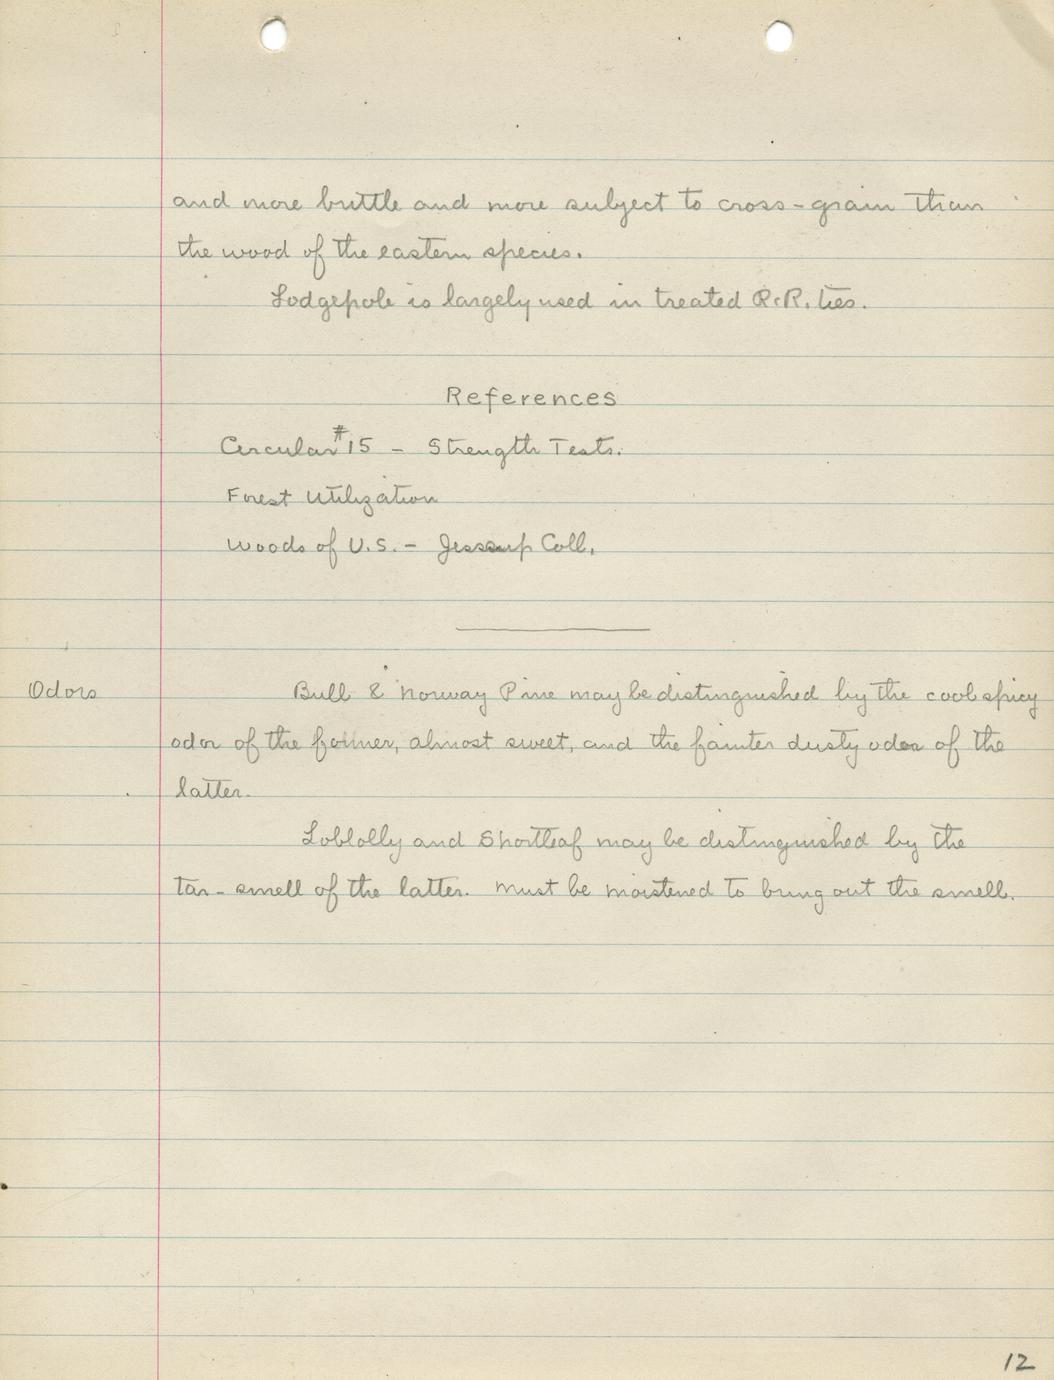 and more brittle and more subject to cross-grain than
the wood of the eastern species.
Lodgepole is largely used in treated R.R. ties.
References
Circular #15 - Strength Tests.
Forest Utilization
Woods of U.S. - Jessup Coll.
Odors
Bull & Norway Pine may be distinguished by the cool spicy
odor of the former, almost sweet, and the fainter dusty odor of the
latter.
Loblolly and Shortleaf may be distinguished by the
tar-smell of the latter. Must be moistened to bring out the smell.
12